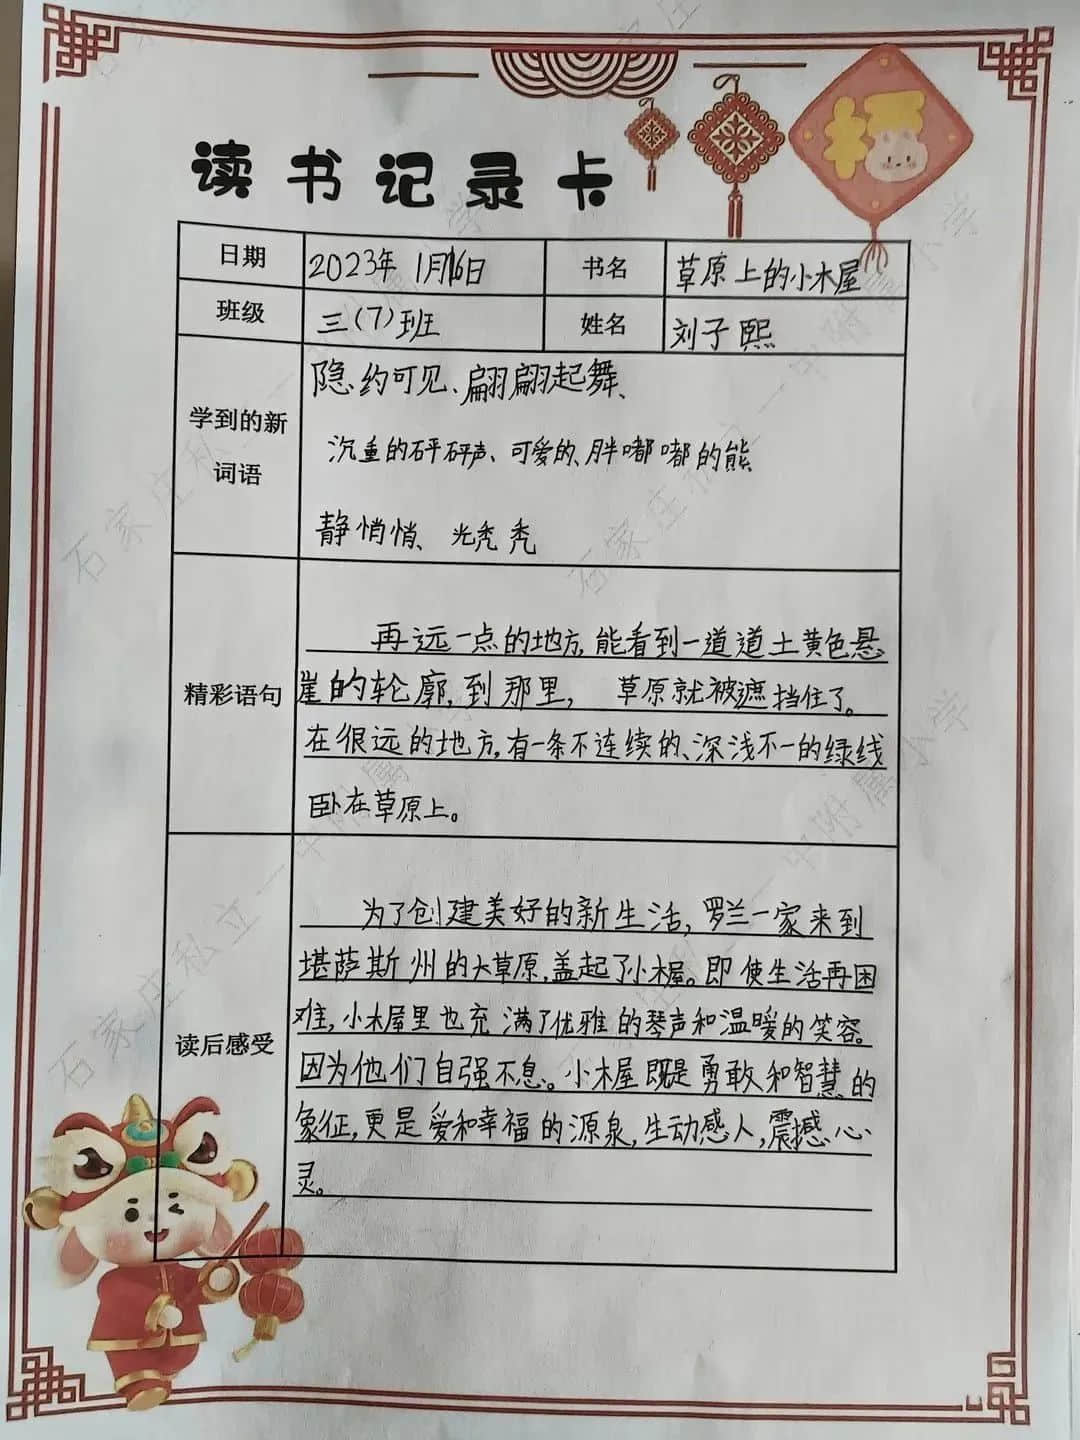 读书记录卡
日期 2023年 1月16日 书名 草原上的小木屋
班级 三(7)班 姓名 刘子熙
学到的新词语
隐约可见、翩翩起舞、
沉重的砰砰声、可爱的、胖嘟嘟的熊
静悄悄、光秃秃
精彩语句
再远一点的地方,能看到一道道土黄色悬
崖的轮廓,到那里, 草原就被遮挡住了。
在很远的地方,有一条不连续的、深浅不一的绿线
卧在草原上。
读后感受
为了创建美好的新生活,罗兰一家来到
堪萨斯州的大草原,盖起了小木屋。即使生活再困
难,小木屋里也充满了优雅的琴声和温暖的笑容。
因为他们自强不息。小木屋既是勇敢和智慧的
象征,更是爱和幸福的源泉,生动感人,震撼心
灵。
石家庄私立一中附属小学
石家庄私立一中附属小学
石家庄私立一中附属小学